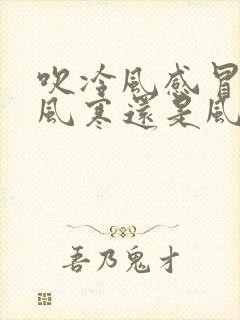 吹冷風感冒
風寒還是風
吾乃鬼才